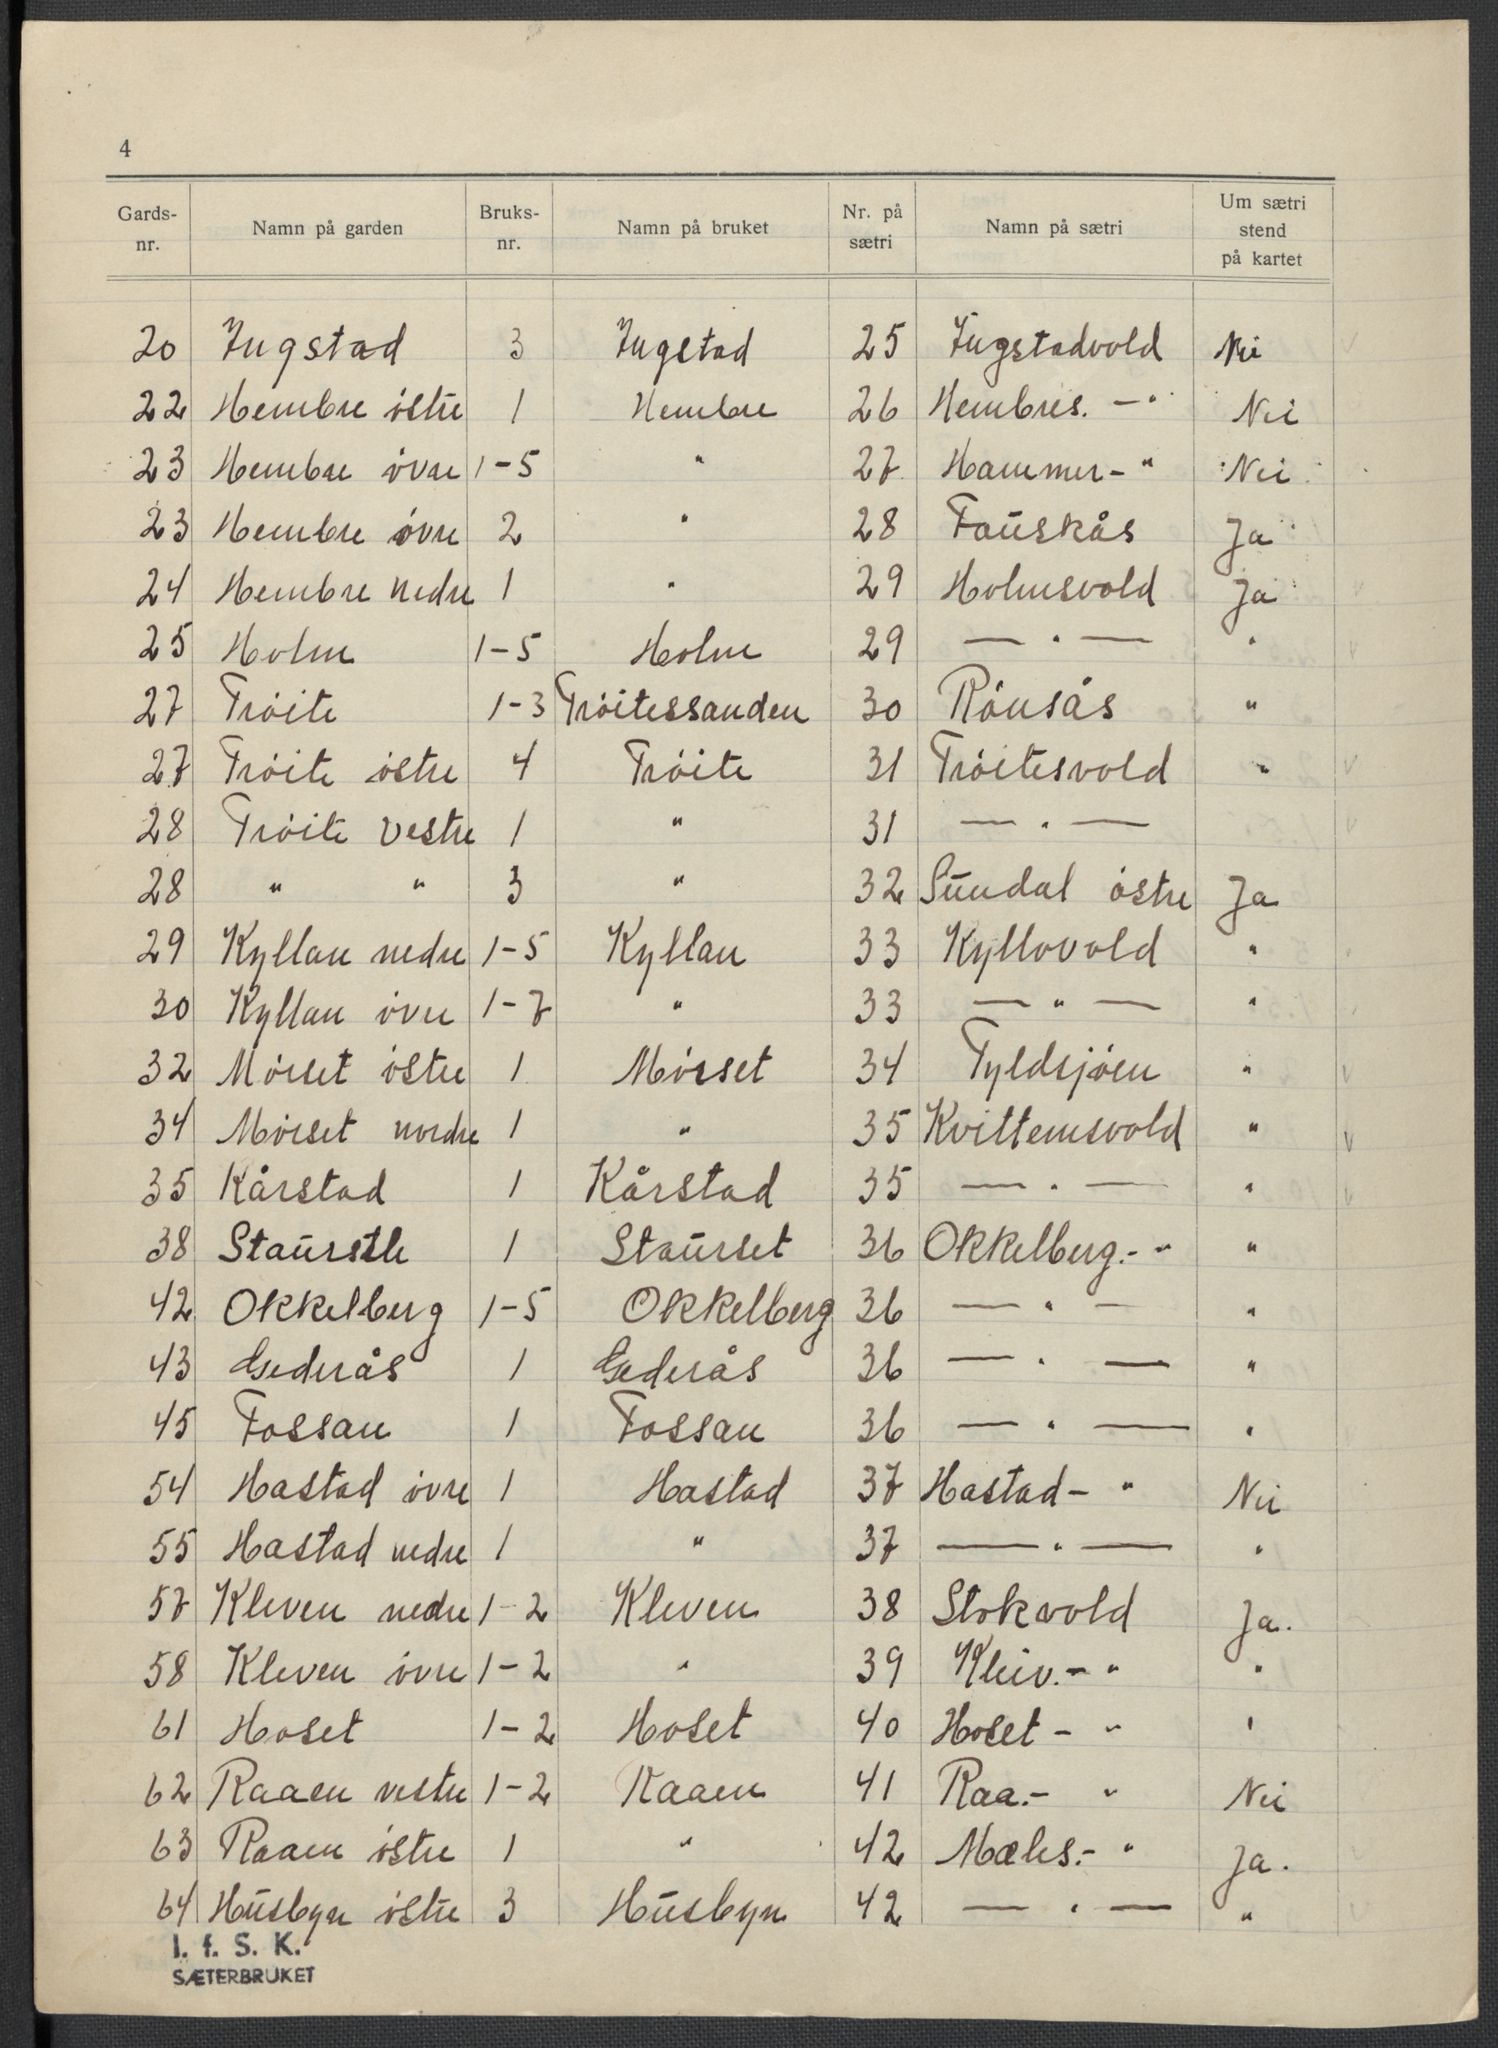 4
Gards-nr. Namn på garden Bruks-nr. Namn på bruket Nr. på sætri Namn på sætri Um sætri stend på kartet
20 Ingstad 3 Ingstad 25 Ingstadvold Nei
22 Hembre östre 1 Hembre 26 Hembres. — " Nei
23 Hembre övre 1-5 " 27 Hammer - " Nei
23 Hembre övre 2 " 28 Fauskås Ja
24 Hembre nedre 1 " 29 Holmsvold Ja
25 Holm 1-5 Holm 29 — " — "
27 Tröite 1-3 Tröitessanden 30 Rönsås "
27 Tröite östre 4 Tröite 31 Tröitesvold "
28 Tröite vestre 1 " 31 — " —
28 " " 3 " 32 Sundal östre Ja
29 Kyllan nedre 1-5 Kyllan 33 Kyllovold "
30 Kyllan övre 1-7 " 33 — " — "
32 Mörset östre 1 Mörset 34 Fyldsjöen "
34 Mörset nordre 1 " 35 Kvittemsvold "
35 Kårstad 1 Kårstad 35 — " — "
38 Staursth 1 Staurset 36 Okkelberg.- " "
42 Okkelberg 1-5 Okkelberg 36 — " — "
43 Gederås 1 Gederås 36 — " — "
45 Fossan 1 Fossan 36 — " — "
54 Hastad övre 1 Hastad 37 Hastad - " Nei
55 Hastad nedre 1 " 37 — " — "
57 Kleven nedre 1-2 Kleven 38 Stokvold Ja.
58 Kleven övre 1-2 " 39 Kleiv.- " "
61 Hoset 1-2 Hoset 40 Hoset - " "
62 Raaen vestre 1-2 Raaen 41 Raa.- " Nei
63 Raaen östre 1 " 42 Mæles.- " Ja.
64 Husbyn östre 3 Husbyn 42 — " — "
I. f. S. K.
SÆTERBRUKET